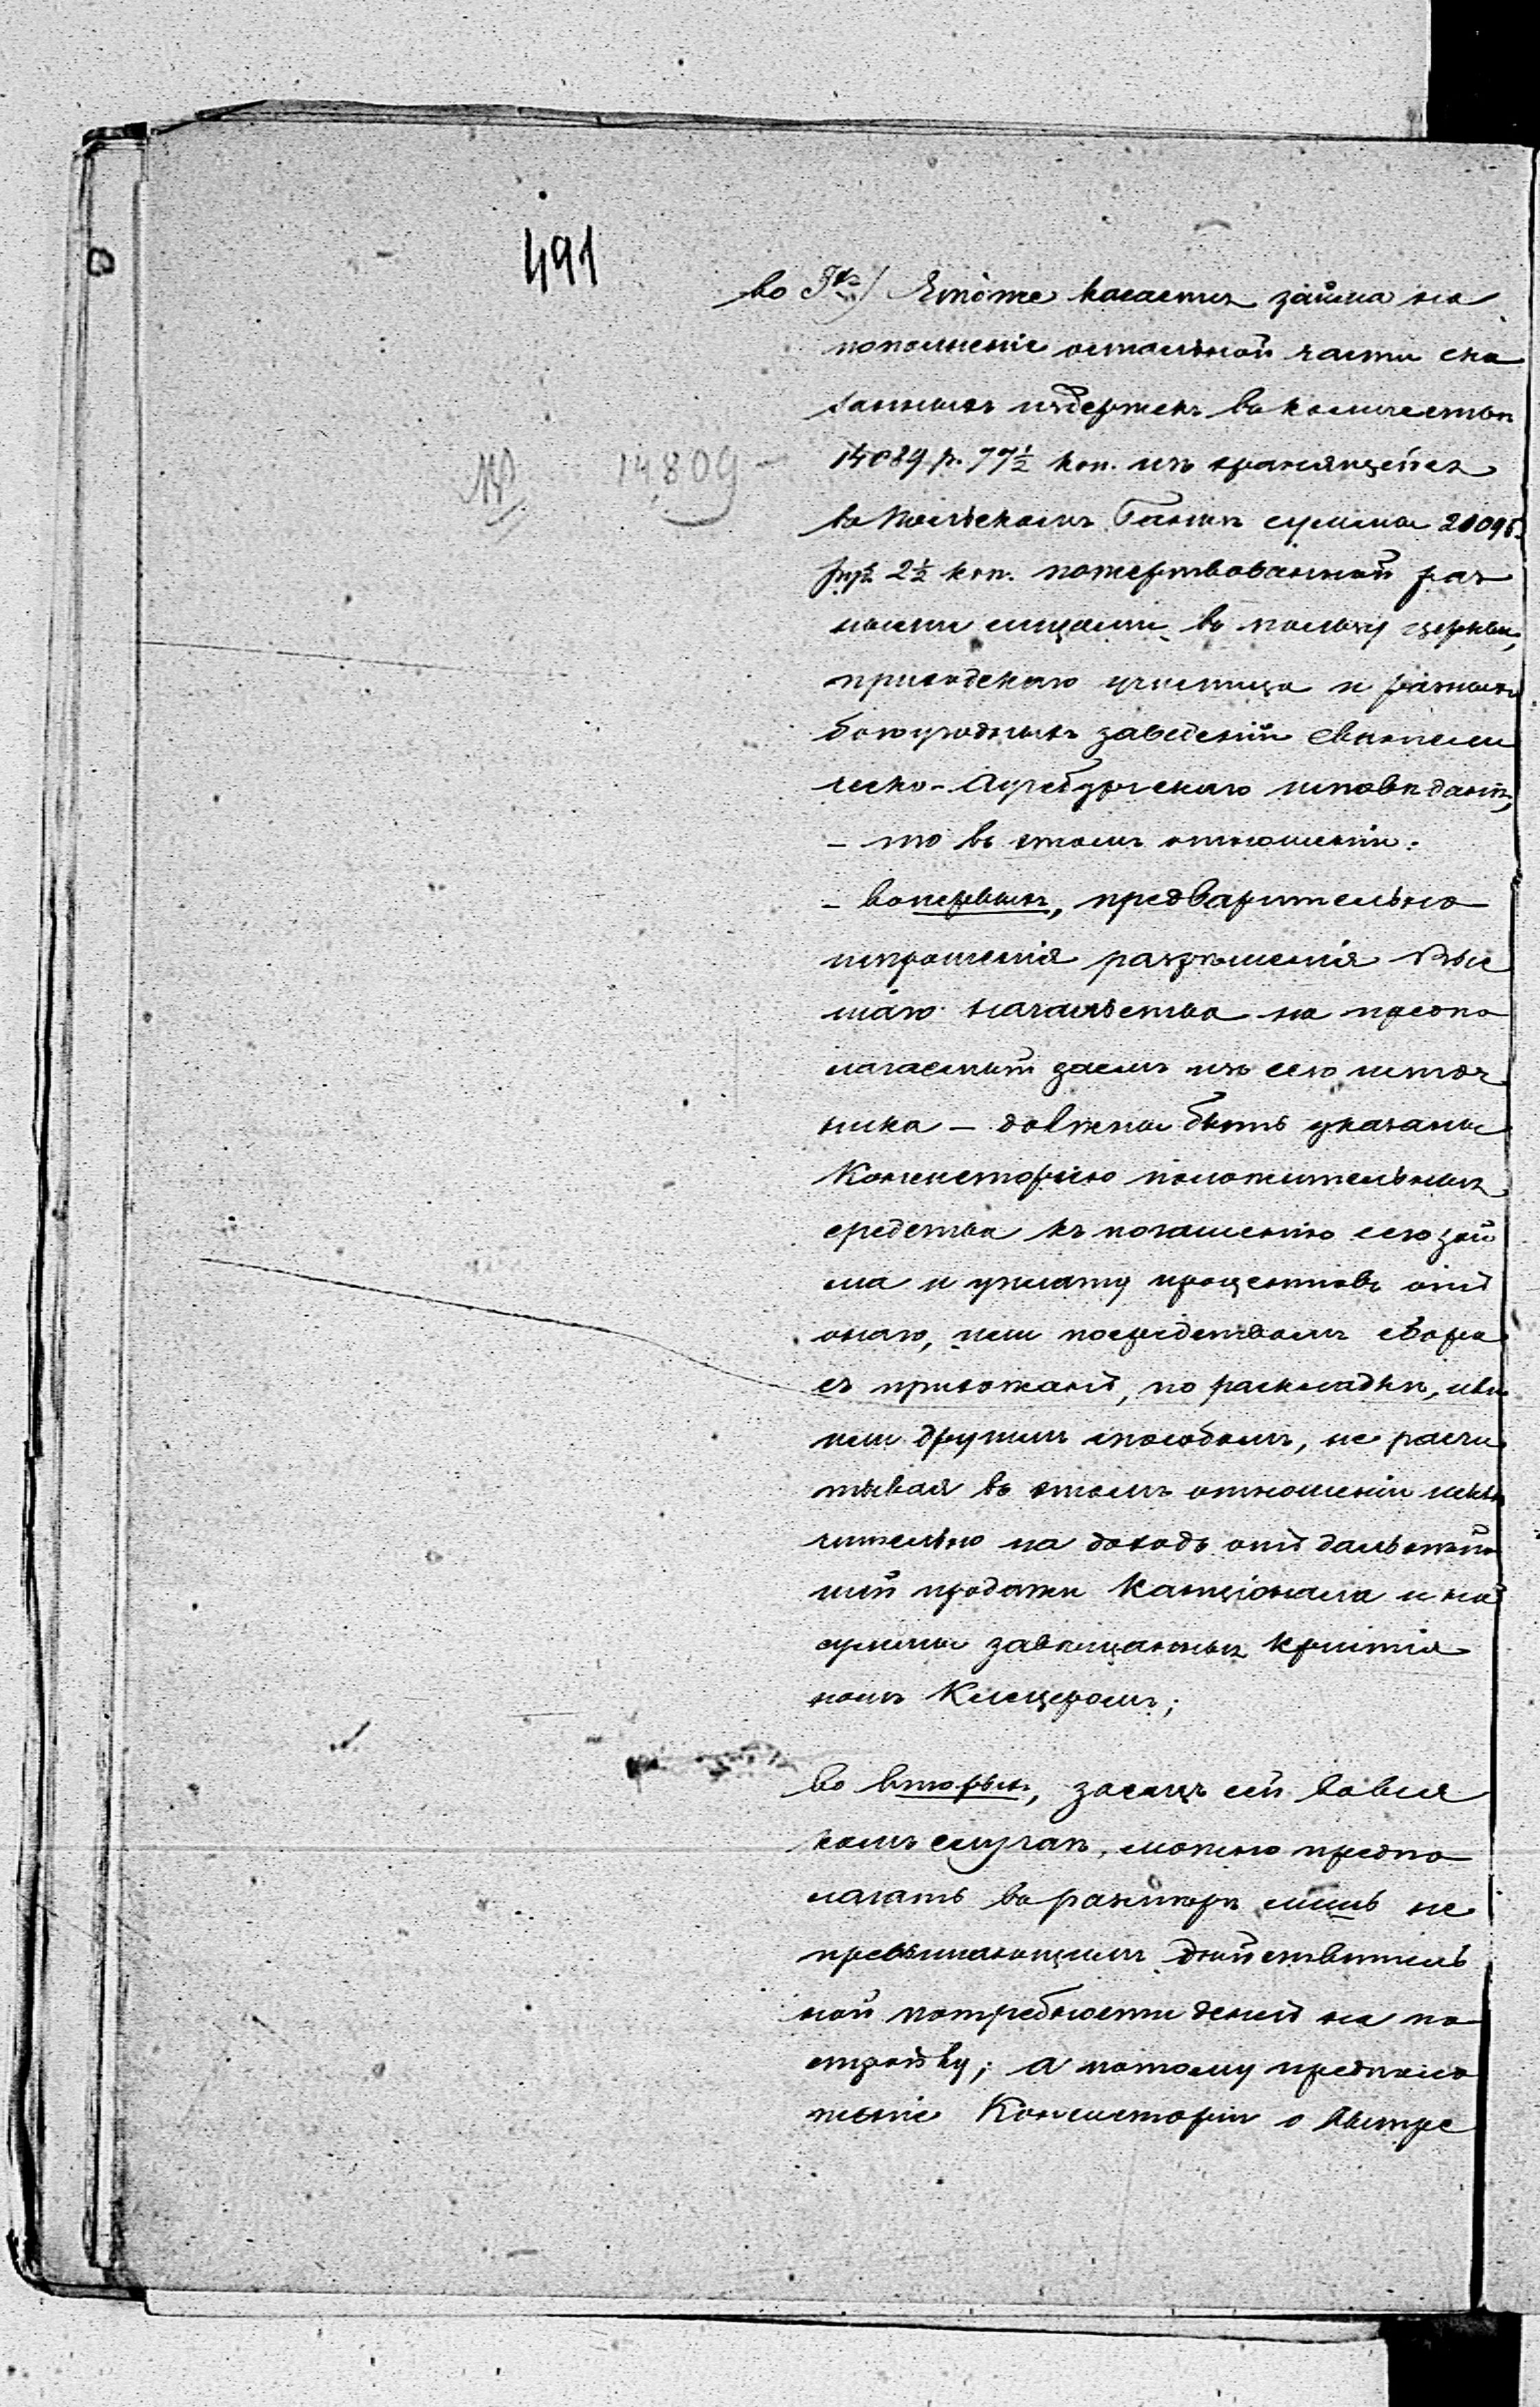 491
во 3хъ) Чтоже касается займа на
пополненіе остальной части ска
занныхъ издержекъ въ количествѣ
№ 14809 —
14089 р. 77½ коп. изъ хранящейся
въ Польскомъ Банкѣ суммы 21095
руб. 2½ коп. пожертвованной раз
ными лицами въ пользу церкви,
приходскаго училища и разныхъ
богоугодныхъ заведеній Евангели
ческо-Аугсбургскаго исповѣданія,
— то въ этомъ отношеніи:
— вопервыхъ, предварительно
испрошенія разрѣшенія Выс
шаго начальства на предпо
лагаемый заемъ изъ сего источ
ника — должны быть указаны
Консисторіею положительныя
средства къ погашенію сего зай
ма и уплату процентовъ отъ
онаго, или посредствомъ сбора
съ прихожанъ, по раскладкѣ, или
инымъ другимъ способомъ, не расчи
тывая въ этомъ отношеніи исклю
чительно на доходъ отъ дальнѣй
шей продажи Канціонала и на
суммы завѣщанныя Христіа
номъ Клецеромъ;
во вторыхъ, заемъ сей вовся
комъ случаѣ, можно предпо
лагать въ размѣрѣ лишь не
превышающемъ дѣйствитель
ной потребности денегъ на по
стройку; а потому предполо
женіе Консисторіи о выстре